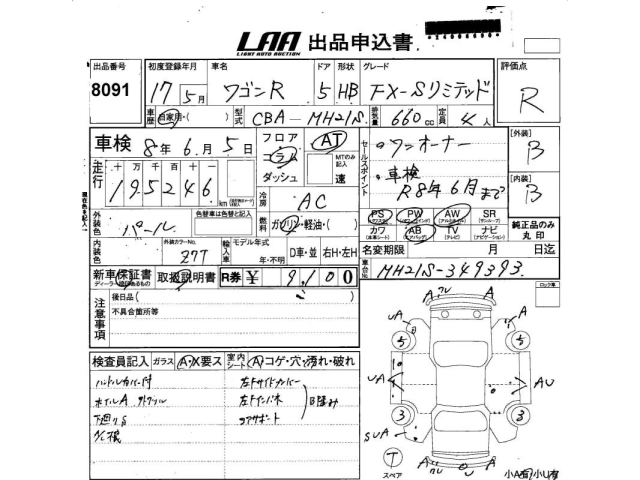 LAA 出品申込書
LIGHT AUTO AUCTION
出品番号 初度登録年月 車名 ドア 形状 グレード 評価点
8091 17 5月 ワゴンR 5 HB FX-Sリミテッド R
車歴 自家用・( ) 型式 CBA-MH21S 排気量 660cc 定員 4人
車検 8年6月5日 フロア コラム ダッシュ AT MTのみ記入 速
セールスポイント ワンオーナー
車検
R8年6月まで
[外装] B
[内装] B
走行 十万千百十 195246 km
冷房 AC
外装色 パール 色替車は色替と記入
燃料 ガソリン・軽油・( )
PS PW AW SR
カワ AB TV ナビ
純正品のみ丸印
内装色 外装カラーNo. 27T 輸入車 モデル年式 年・不明 D車・並 右H・左H
名変期限 月 日迄
新車保証書 取扱説明書 R券 ¥ 9,100
車台No. MH21S-349393
注意事項
後日品( )
不具合箇所等
ロック車
検査員記入 ガラス A・X要ス 室内シート A コゲ・穴・汚れ・破れ
ハンドルカバー付
下廻りS
A A
UA A
5 5
UA AU
3 3
SUA A
T
スペア
A U A
小A有 小U有
現在色を記入